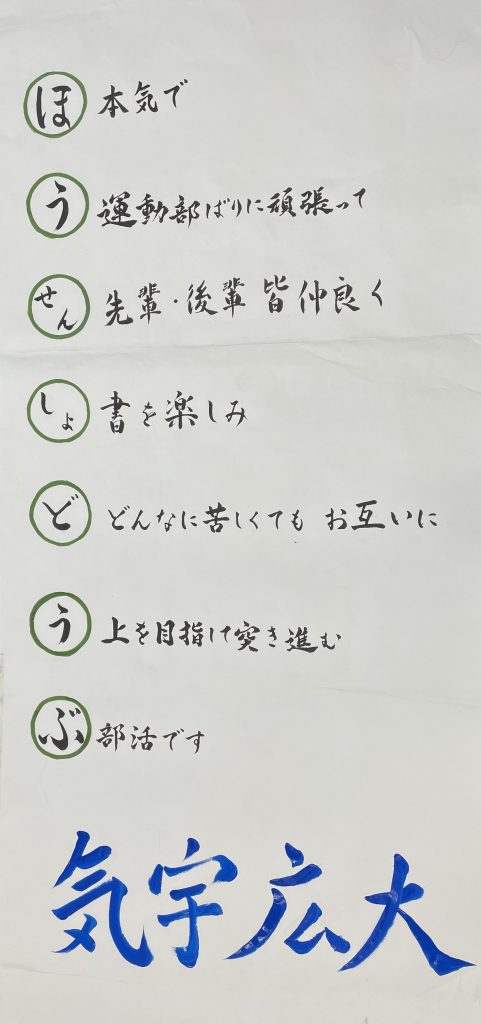 ほ 本気で
う 運動部ばりに頑張って
せん 先輩・後輩 皆仲良く
しょ 書を楽しみ
ど どんなに苦しくても お互いに
う 上を目指け突き進む
ぶ 部活です
気宇広大